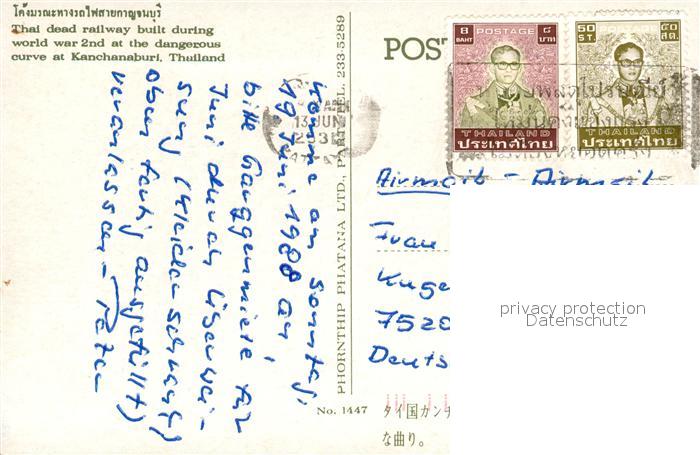 โค้งมรณะทางรถไฟสายกาญจนบุรี
Thai dead railway built during
world war 2nd at the dangerous
curve at Kanchanaburi, Thailand
komme am Sonntag,
19 Juni 1988 an,
bitte Garagenmiete für
Juni durch Überwei-
sung (Kleiderschrank
oben fertig ausgefüllt)
veranlassen - Peter
PHORNTHIP PHATANA LTD., PART. TEL. 233-5289
No. 1447
POST
8
BAHT
POSTAGE
๘
บาท
THAILAND
ประเทศไทย
50
ST.
POSTAGE
๕๐
สต.
THAILAND
ประเทศไทย
13 JUN
Airmail - Airmail
Frau
Kuge
7520
Deuts
privacy protection
Datenschutz
タイ国カンチ
な曲り。